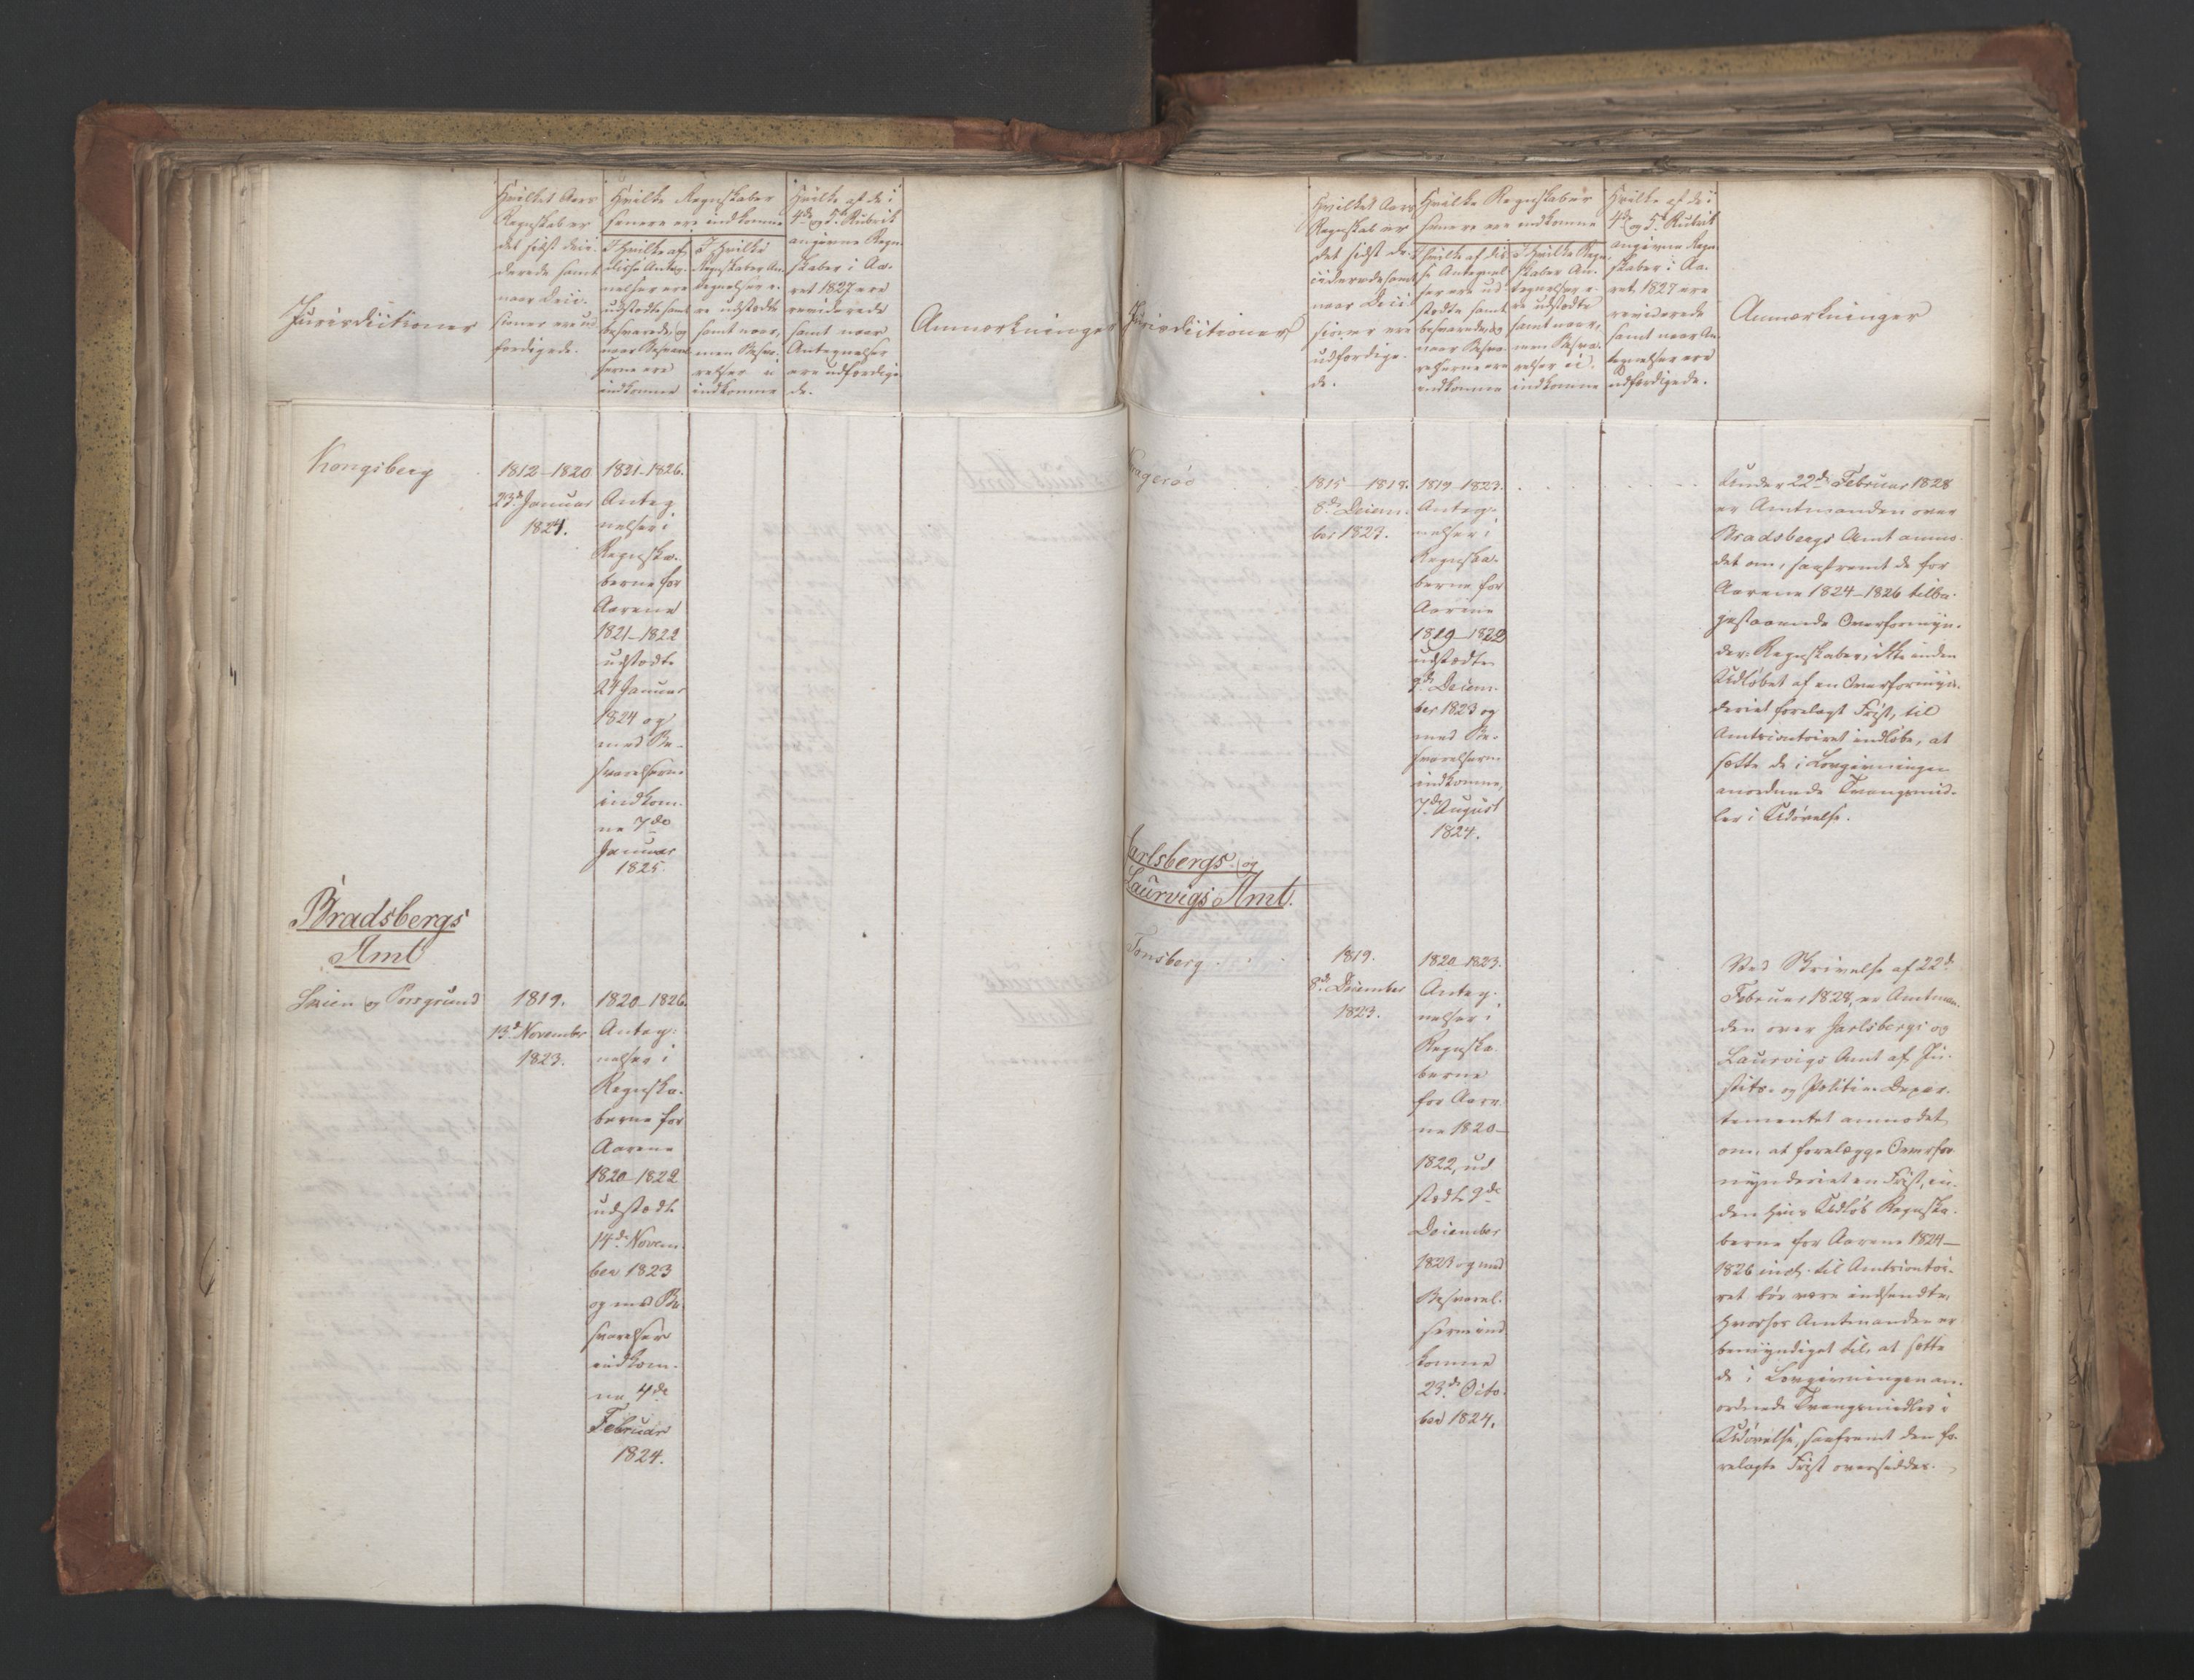 Jurisdictioner
Hvilket Aars
Regnskab er
det sidst deci-
derede samt
naar Deci-
sioner ere ud
færdigede.
Hvilke Regnskaber
senere ere indkomne
I Hvilke af
disse Anteg-
nelser ere
udstædte samt
besvarede, og
naar Besvarel
serne ere
indkomne
I Hvilke
Regnskaber An-
tegnelser e-
re udstædte
samt naar,
men Besva-
relser ei
indkomne
Hvilke af de i
4de og 5te Rubrik
angivne Regn-
skaber i Aa-
ret 1827 ere
reviderede
samt naar
Antegnelser
ere udfærdige
de.
Anmærkninger
Kongsberg
1812–1820
23de Januar
1824.
1821–1826.
Anteg
nelser i
Regnska-
berne for
Aarene
1821–1822
udstædte
24 Januar
1824 og
med Be-
svarelserne
indkom-
ne 7de
Januar
1825.
Bradsbergs
Amt
Skien og Porsgrund
1819.
13de November
1823.
1820–1826.
Anteg-
nelser i
Regnska-
berne for
Aarene
1820–1822
udstædt
14de Novem-
ber 1823
og med Be-
svarelser
indkom-
ne 4de
Februar
1824.
Jurisdictioner
Hvilket Aars
Regnskab er
det sidst de-
ciderede samt
naar Deci-
sioner ere
udfærdige-
de.
Hvilke Regnskaber
senere ere indkomne
I Hvilke af dis
se Antegnel
ser ere ud
stædte samt
besvarede, og
naar Besva-
relserne ere
indkomne
I Hvilke Regn-
skaber An-
tegnelser e-
re udstædte
samt naar,
men Besva-
relser ei
indkomne
Hvilke af de i
4de og 5te Rubrik
angivne Regn-
skaber i Aa-
ret 1827 ere
reviderede
samt naar An-
tegnelser ere
udfærdigede.
Anmærkninger
Kragerøe
1815–1818.
8de Decem-
ber 1823.
1819–1823.
Anteg-
nelser i
Regnska-
berne for
Aarene
1819–1822
udstædte
9de Decem-
ber 1823 og
med Be-
svarelserne
indkomne,
7de August
1824.
Under 22de Februar 1828
er Amtmanden over
Bradsbergs Amt anmo-
det om, saafremt de for
Aarene 1824–1826 tilba-
gestaaende Overformyn-
der-Regnskaber, ikke inden
Udløbet af en Overformyn-
deriet forelagt Frist, til
Amtscontoiret indløbe, at
sætte de i Lovgivningen
anordnede Tvangsmid-
ler i Udøvelse.
Jarlsbergs og
Laurvigs Amt.
Tønsberg
1819.
8de December
1823.
1820–1823.
Anteg-
nelser i
Regnska-
berne
for Aare-
ne 1820–
1822, ud
stædt 9de
December
1823 og med
Besvarel-
serne ind
komne
23de Octo-
ber 1824.
Ved Skrivelse af 22de
Februar 1828, er Amtman-
den over Jarlsbergs og
Laurvigs Amt af Ju-
stits- og Politie-Depar-
tementet anmodet
om, at forelægge Overfor
mynderiet en Frist, in-
den hvis Udløb Regnska-
berne for Aarene 1824–
1826 incl. til Amtscontoi-
ret bør være indsendte,
hvorhos Amtmanden er
bemyndiget til, at sætte
de i Lovgivningen an-
ordnede Tvangsmidler i
Udøvelse, saafremt den fo-
relagte Frist oversiddes.